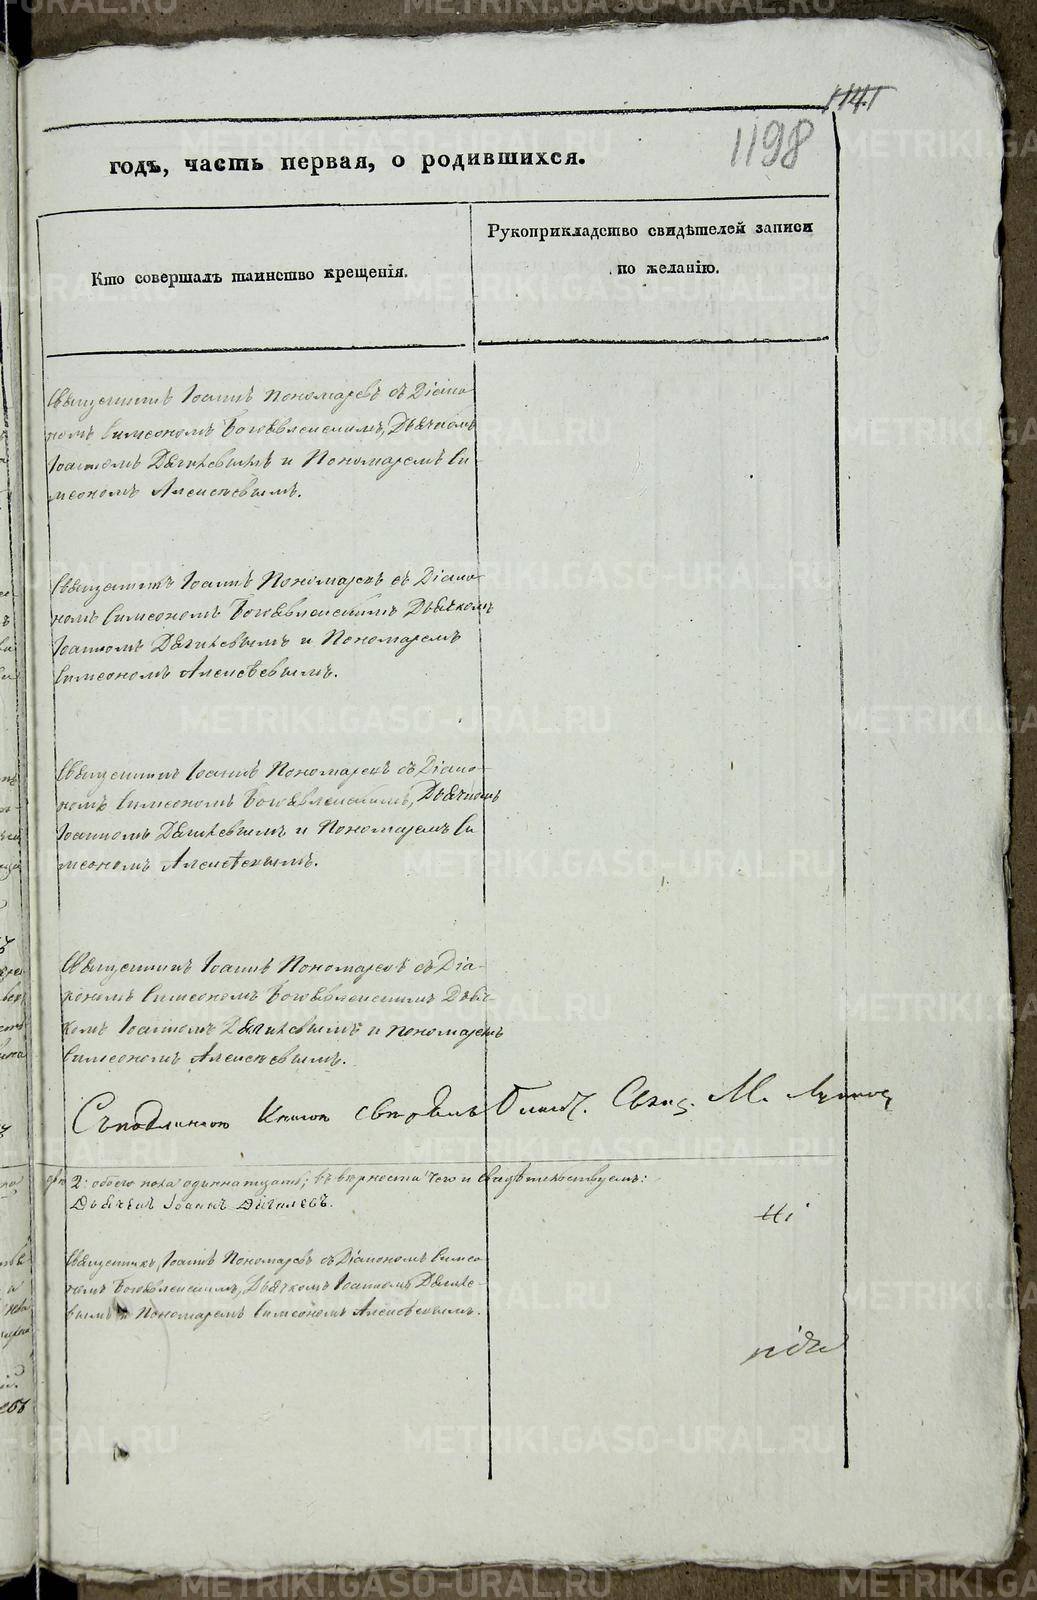 1141
1198
годъ, часть первая, о родившихся.
Кто совершалъ таинство крещенія.
Рукоприкладство свидѣтелей записи
по желанію.
Священникъ Іоаннъ Пономаревъ съ Діако-
номъ Симеономъ Богоявленскимъ, Дьячкомъ
Іоанномъ Дягилевымъ и Пономаремъ Си-
меономъ Алексѣевымъ.
Священникъ Іоаннъ Пономаревъ съ Діако-
номъ Симеономъ Богоявленскимъ Дьячкомъ
Іоанномъ Дягилевымъ и Пономаремъ
Симеономъ Алексѣевымъ.
Священникъ Іоаннъ Пономаревъ съ Діако-
номъ Симеономъ Богоявленскимъ, Дьячкомъ
Іоанномъ Дягилевымъ и Пономаремъ Си
меономъ Алексѣевымъ.
Священникъ Іоаннъ Пономаревъ съ Діа-
кономъ Симеономъ Богоявленскимъ Дьяч-
комъ Іоанномъ Дягилевымъ и пономаремъ
Симеономъ Алексѣевымъ.
Съ подлинною книгою свѣрялъ Свящ. М.
2: обоего пола одиннатцать; въ вѣрности чего и свидѣтельствуемъ:
Дьячекъ Іоаннъ Дягилевъ.
Священникъ, Іоаннъ Пономаревъ съ Діакономъ Симео-
номъ Богоявленскимъ, Дьячкомъ Іоанномъ Дягиле-
вымъ и Пономаремъ Симеономъ Алексѣевымъ.
METRIKI.GASO-URAL.RU